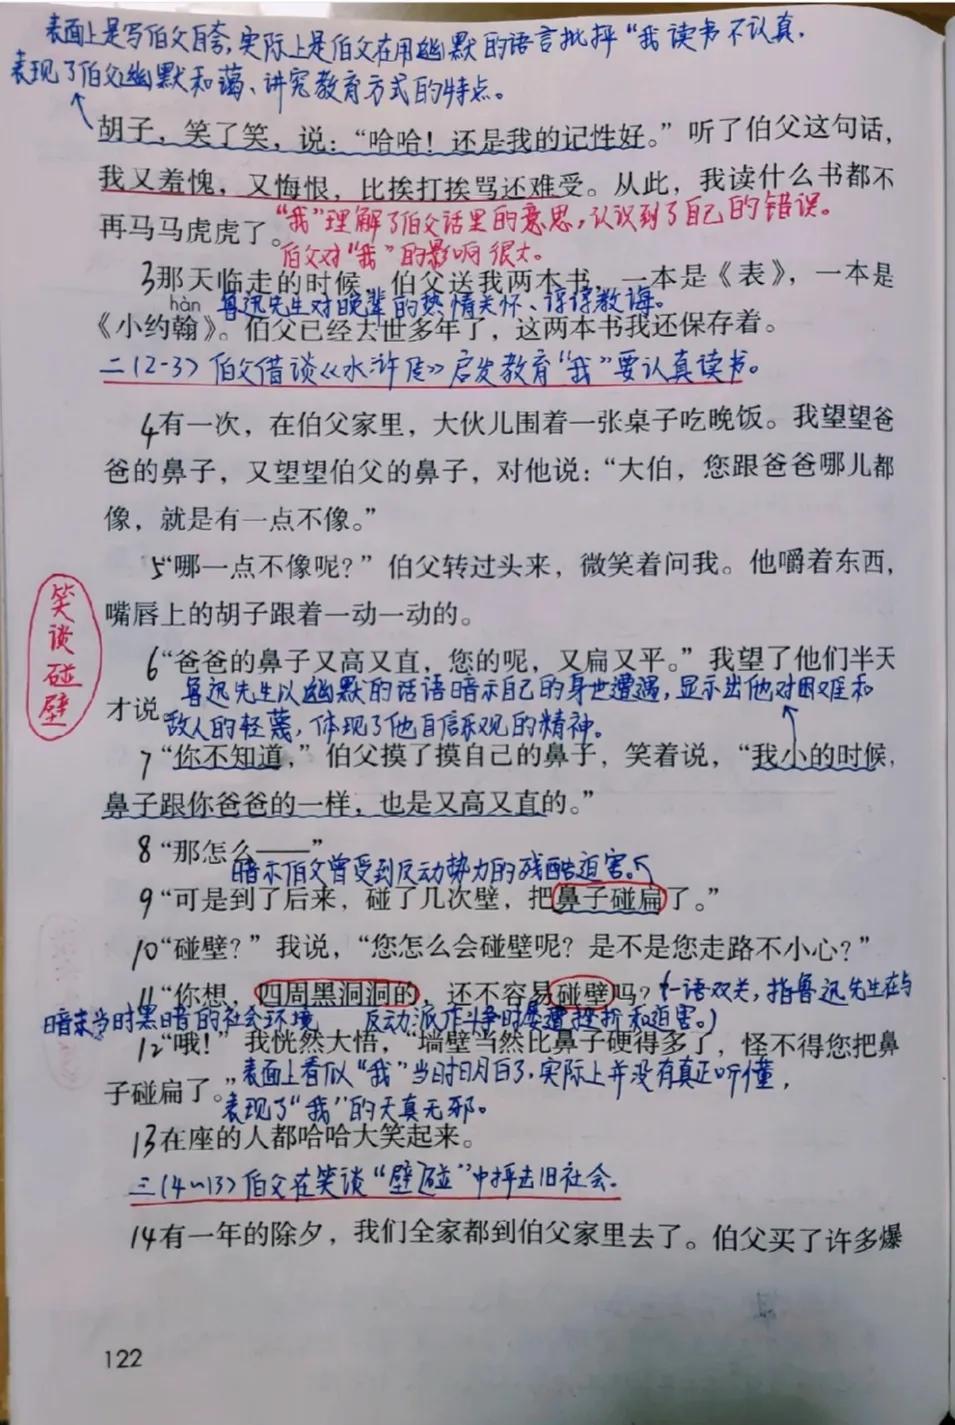 表面上是写伯父自夸，实际上是伯父在用幽默的语言批评“我读书不认真，
表现了伯父幽默和蔼、讲究教育方式的特点。
胡子，笑了笑，说：“哈哈！还是我的记性好。”听了伯父这句话，
我又羞愧，又悔恨，比挨打挨骂还难受。从此，我读什么书都不
再马马虎虎了。
“我”理解了伯父话里的意思，认识到了自己的错误。
伯父对“我”的影响很大。
3那天临走的时候，伯父送我两本书，一本是《表》，一本是
hàn
鲁迅先生对晚辈的热情关怀、谆谆教诲。
《小约翰》。伯父已经去世多年了，这两本书我还保存着。
二(2-3)伯父借谈《水浒传》启发教育“我”要认真读书。
4有一次，在伯父家里，大伙儿围着一张桌子吃晚饭。我望望爸
爸的鼻子，又望望伯父的鼻子，对他说：“大伯，您跟爸爸哪儿都
像，就是有一点不像。”
5“哪一点不像呢？”伯父转过头来，微笑着问我。他嚼着东西，
嘴唇上的胡子跟着一动一动的。
笑谈碰壁
6“爸爸的鼻子又高又直，您的呢，又扁又平。”我望了他们半天
才说。
鲁迅先生以幽默的话语暗示自己的身世遭遇，显示出他对困难和
敌人的轻蔑，体现了他自信乐观的精神。
7“你不知道，”伯父摸了摸自己的鼻子，笑着说，“我小的时候，
鼻子跟你爸爸的一样，也是又高又直的。”
8“那怎么——”
暗示伯父曾受到反动势力的残酷迫害。
9“可是到了后来，碰了几次壁，把鼻子碰扁了。”
10“碰壁？”我说，“您怎么会碰壁呢？是不是您走路不小心？”
11“你想，四周黑洞洞的，还不容易碰壁吗？
(一语双关，指鲁迅先生在与
暗示当时黑暗的社会环境
反动派作斗争时屡遭挫折和迫害。)
12“哦！”我恍然大悟，“墙壁当然比鼻子硬得多了，怪不得您把鼻
子碰扁了。”
表面上看似“我”当时明白了，实际上并没有真正听懂，
表现了“我”的天真无邪。
13在座的人都哈哈大笑起来。
三(4~13)伯父在笑谈“壁碰”中抨击旧社会.
14有一年的除夕，我们全家都到伯父家里去了。伯父买了许多爆
122